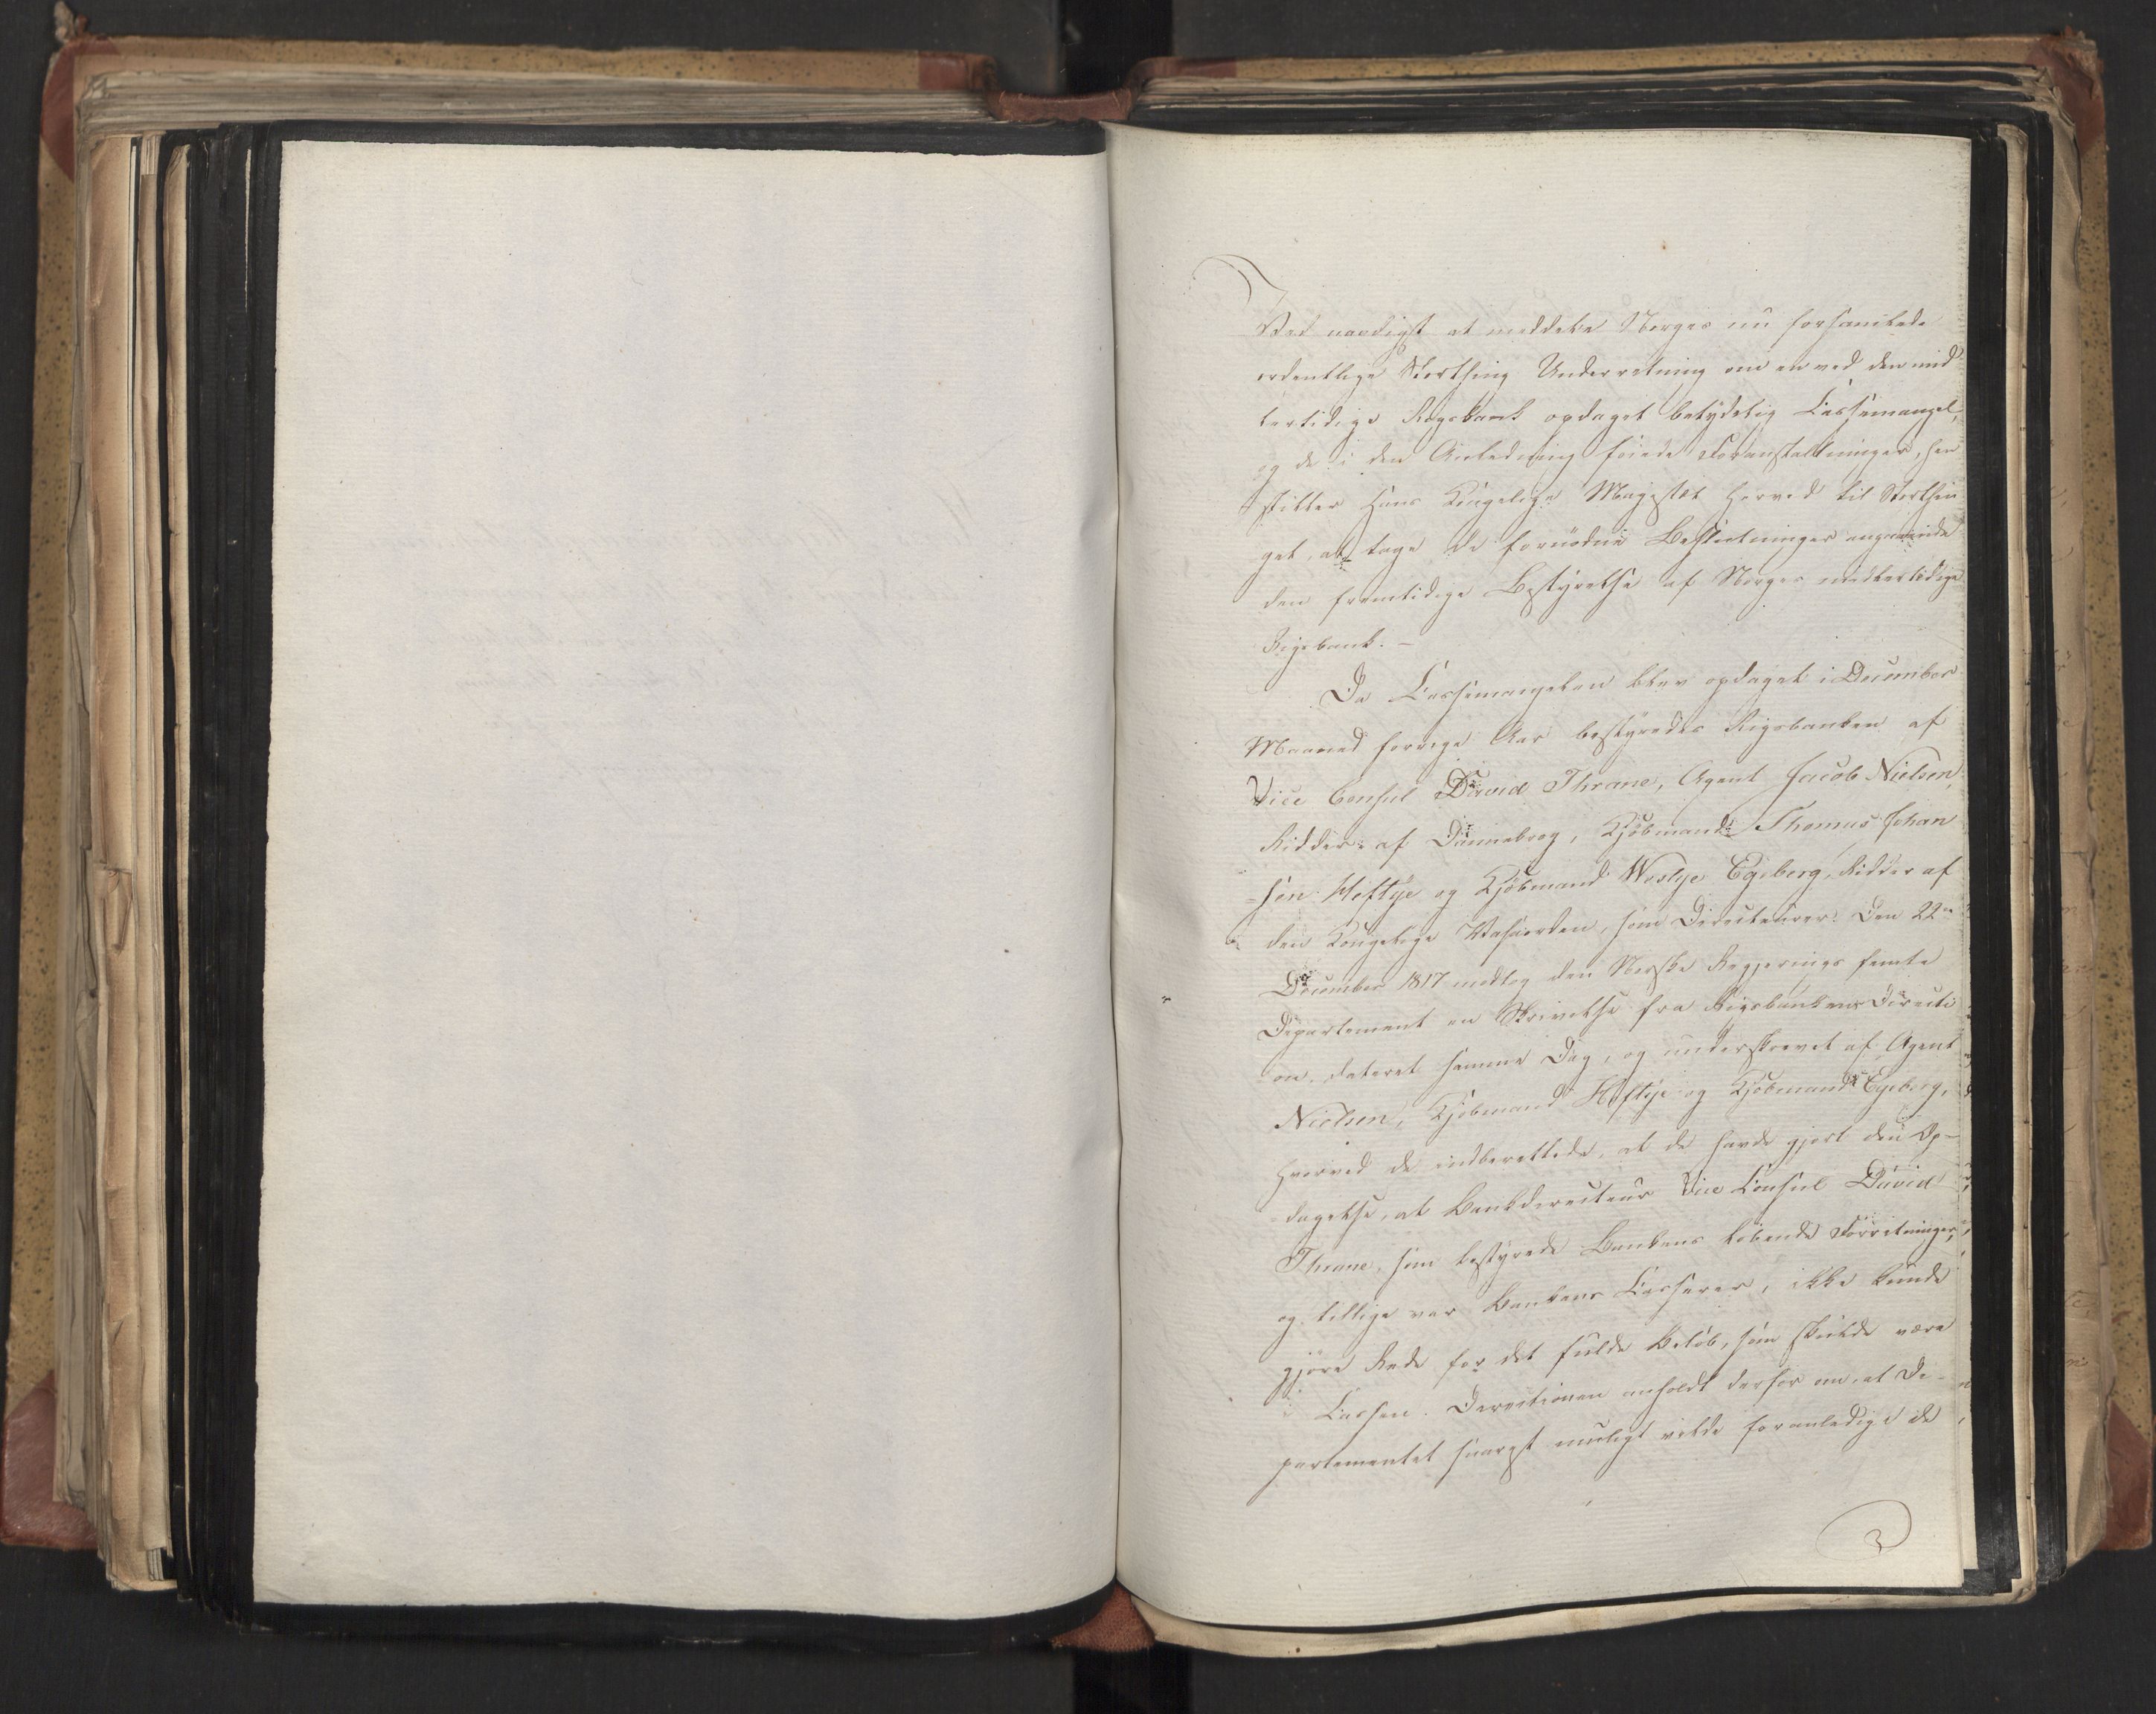 Ved naadigst at meddele Norges nu forsamlede
ordentlige Storthing Underretning om en ved den mid
lertidige Rigsbank opdaget betydelig Cassemangel,
og de i den Anledning föiede Foranstaltninger, hen
stiller Hans Kongelige Majestæt herved til Storthin
get, at tage de fornödne Beslutninger angaaende
den fremtidige Bestyrelse af Norges midlertidige
Rigsbank. –
Da Cassemangelen blev opdaget i December
Maaned forrige Aar bestyredes Rigsbanken af
Vice Consul David Thrane, Agent Jacob Nielsen,
Ridder af Dannebrog, Kjöbmand Thomas Johan
=sen Heftye og Kjöbmand Westye Egeberg, Ridder af
den Kongelige Vasaorden, som Directeurer. Den 22de
December 1817 modtog den Norske Regjerings femte
Departement en Skrivelse fra Rigsbankens Directi
on, dateret samme Dag, og underskrevet af Agent
Nielsen, Kjöbmand Heftye og Kjöbmand Egeberg,
hvorved de indberettede, at de havde gjort den Op-
=dagelse, at Bankdirecteur Vice Consul David
Thrane, som bestyrede Bankens löbende Forretninger,
og tillige var Bankens Casserer, ikke kunde
gjöre Rede for det fulde Belöb, som skulde være
i Cassen. Directionen anholdt derfor om, at De-
partementet snarest muligt vilde foranledige de